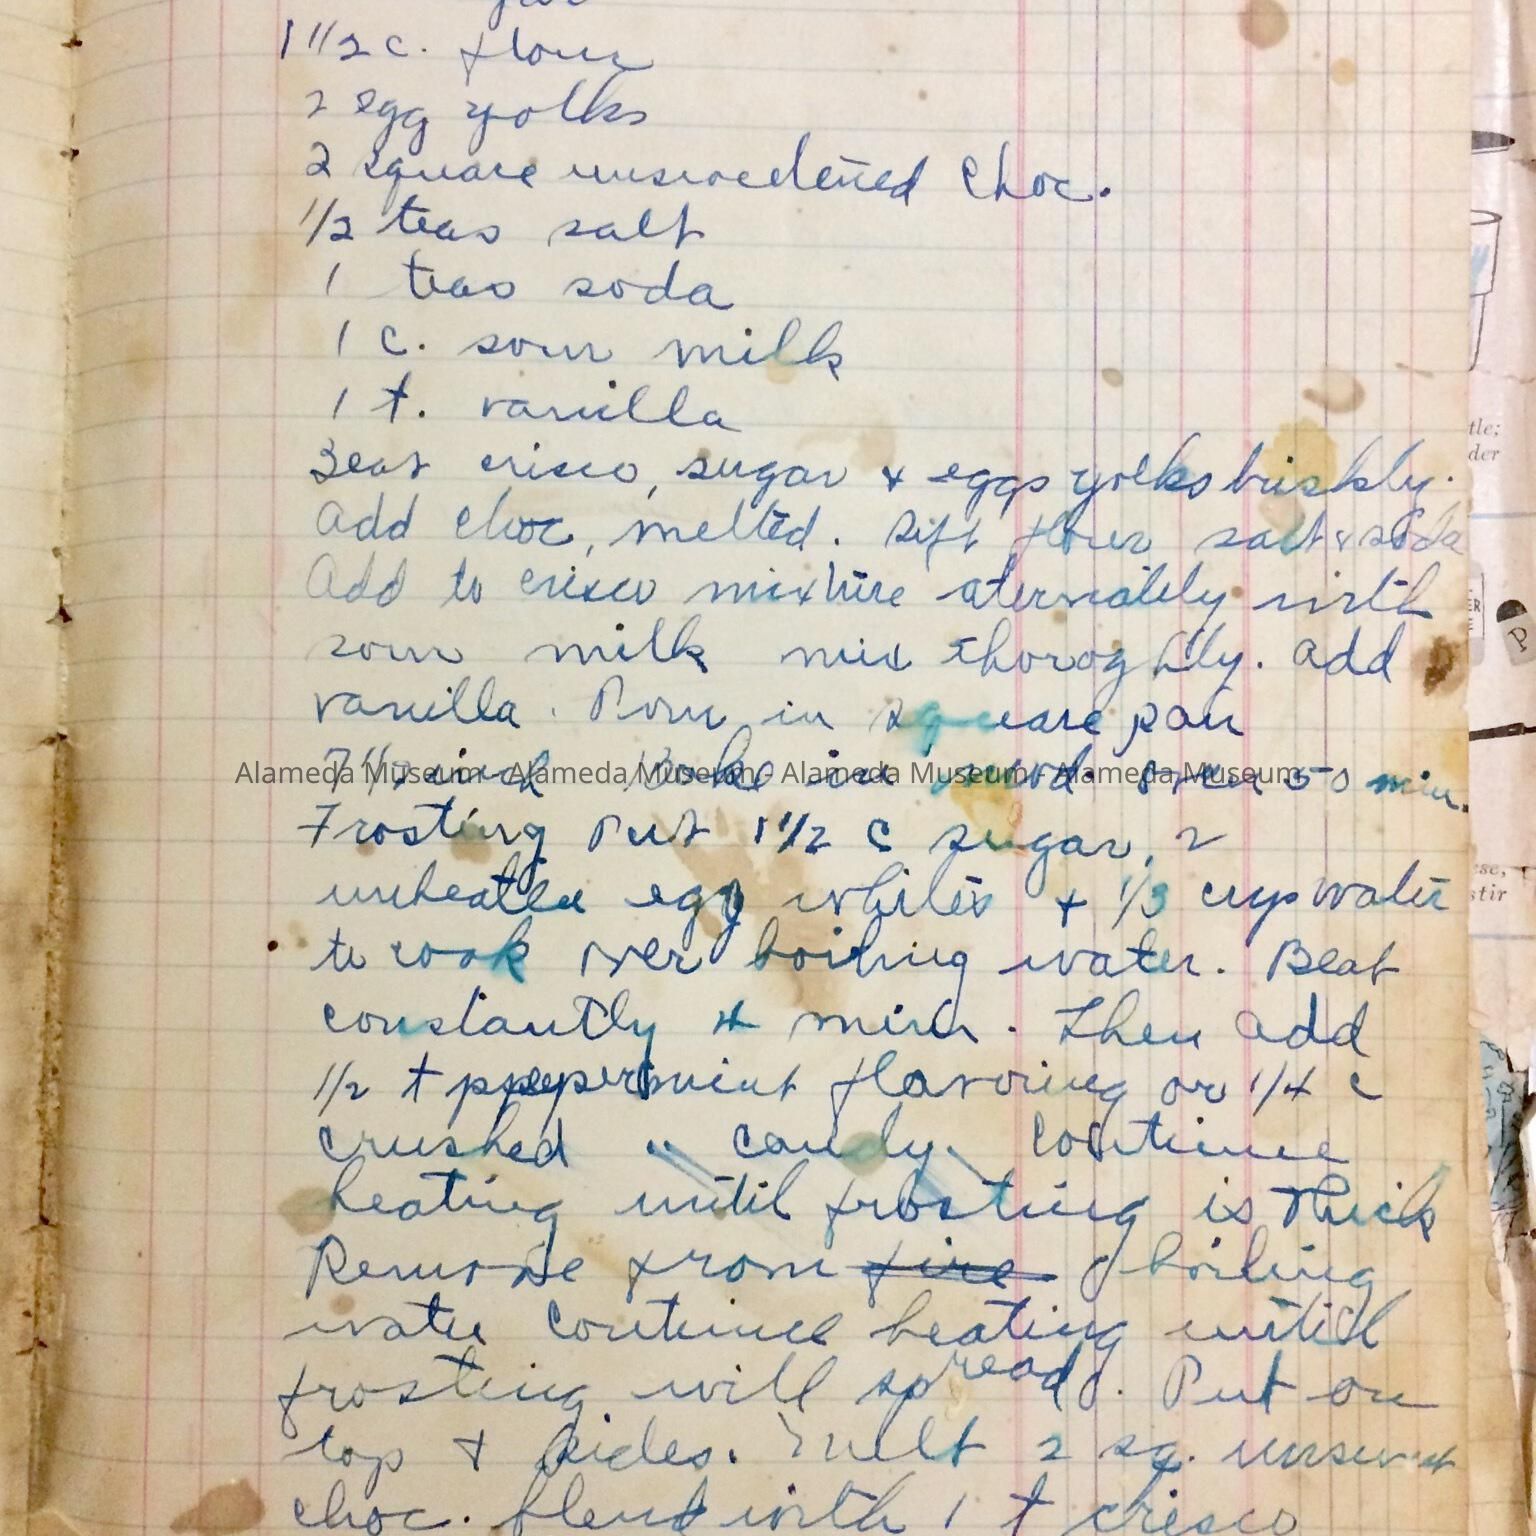 1 1/2 c. flour
2 egg yolks
2 square unsweetened choc.
1/2 teas salt
1 teas soda
1 c. sour milk
1 t. vanilla
Beat crisco, sugar + eggs yolks briskly.
Add choc, melted. Sift flour salt + soda
Add to crisco mixture aternately with
sour milk mix thoroghly. add
vanilla. Pour in square pan
7 1/2 inch Bake in mod oven 50 min.
Alameda Museum - Alameda Museum - Alameda Museum - Alameda Museum
Frosting Put 1 1/2 c sugar, 2
unbeaten egg whites + 1/3 cup water
to cook over boiling water. Beat
constantly 4 min. Then add
1/2 t peppermint flavoring or 1/4 c
crushed " candy. Continue
beating until frosting is thick
Remove from fire boiling
water Continue beating until
frosting will spread. Put on
top + sides. Melt 2 sq. unsweet
choc. blend with 1 t crisco
tle;
der
ER
E
P
ese,
stir